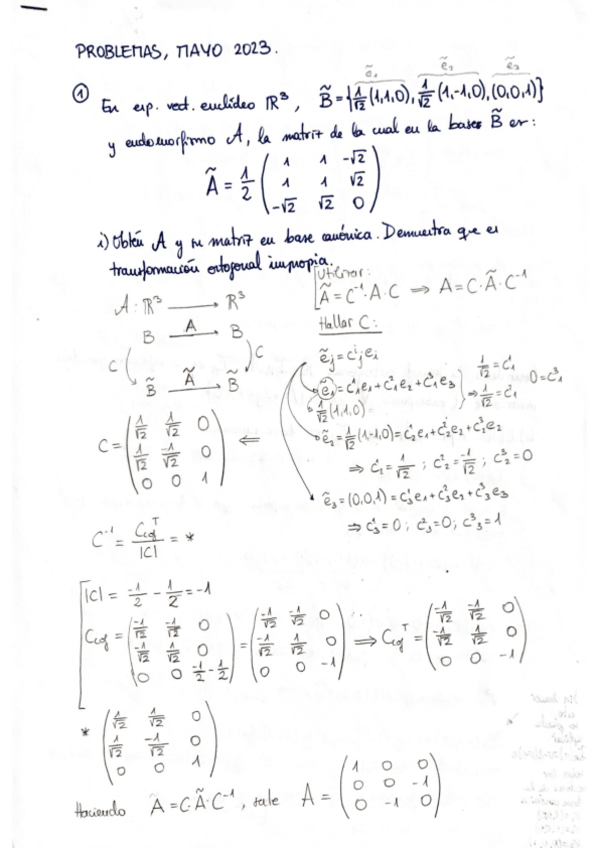 PROBLEMAS, MAYO 2023.
① En esp. vect. euclídeo ℝ³, B̃={1/√2(1,1,0), 1/√2(1,-1,0), (0,0,1)}
ẽ₁ ẽ₂ ẽ₃
y endomorfismo A, la matriz de la cual en la base B̃ es:
Ã = 1/2 ( 1 1 -√2
1 1 √2
-√2 √2 0 )
i) Obtén A y su matriz en base canónica. Demuestra que es
transformación ortogonal impropia.
Utilizar:
Ã = C⁻¹·A·C ⇒ A = C·Ã·C⁻¹
Hallar C:
A: ℝ³ → ℝ³
B A B
C C
B̃ Ã B̃
ẽj = cʲj ei
ẽ₁ = C¹₁e₁ + C²₁e₂ + C³₁e₃
1/√2(1,1,0) =
⇒ 1/√2 = C¹₁
1/√2 = C₁
0 = C³₁
ẽ₂ = 1/√2(1-1,0) = C¹₂e₁ + C²₂e₂ + C³₂e₂
⇒ C¹₂ = 1/√2 ; C²₂ = -1/√2 ; C³₂ = 0
ẽ₃ = (0,0,1) = C¹₃e₁ + C²₃e₂ + C³₃e₃
⇒ C¹₃ = 0 ; C²₃ = 0 ; C³₃ = 1
C = ( 1/√2 1/√2 0
1/√2 -1/√2 0
0 0 1 ) ⇐
C⁻¹ = Ccofᵀ / |C| = *
|C| = -1/2 - 1/2 = -1
Ccof = ( -1/√2 -1/√2 0
-1/√2 1/√2 0
0 0 -1/2 - 1/2 ) = ( -1/√2 -1/√2 0
-1/√2 1/√2 0
0 0 -1 ) ⇒ Ccofᵀ = ( -1/√2 -1/√2 0
-1/√2 1/√2 0
0 0 -1 )
* ( 1/√2 1/√2 0
1/√2 -1/√2 0
0 0 1 )
Haciendo Ã = C·Ã·C⁻¹, sale A = ( 1 0 0
0 0 -1
0 -1 0 )